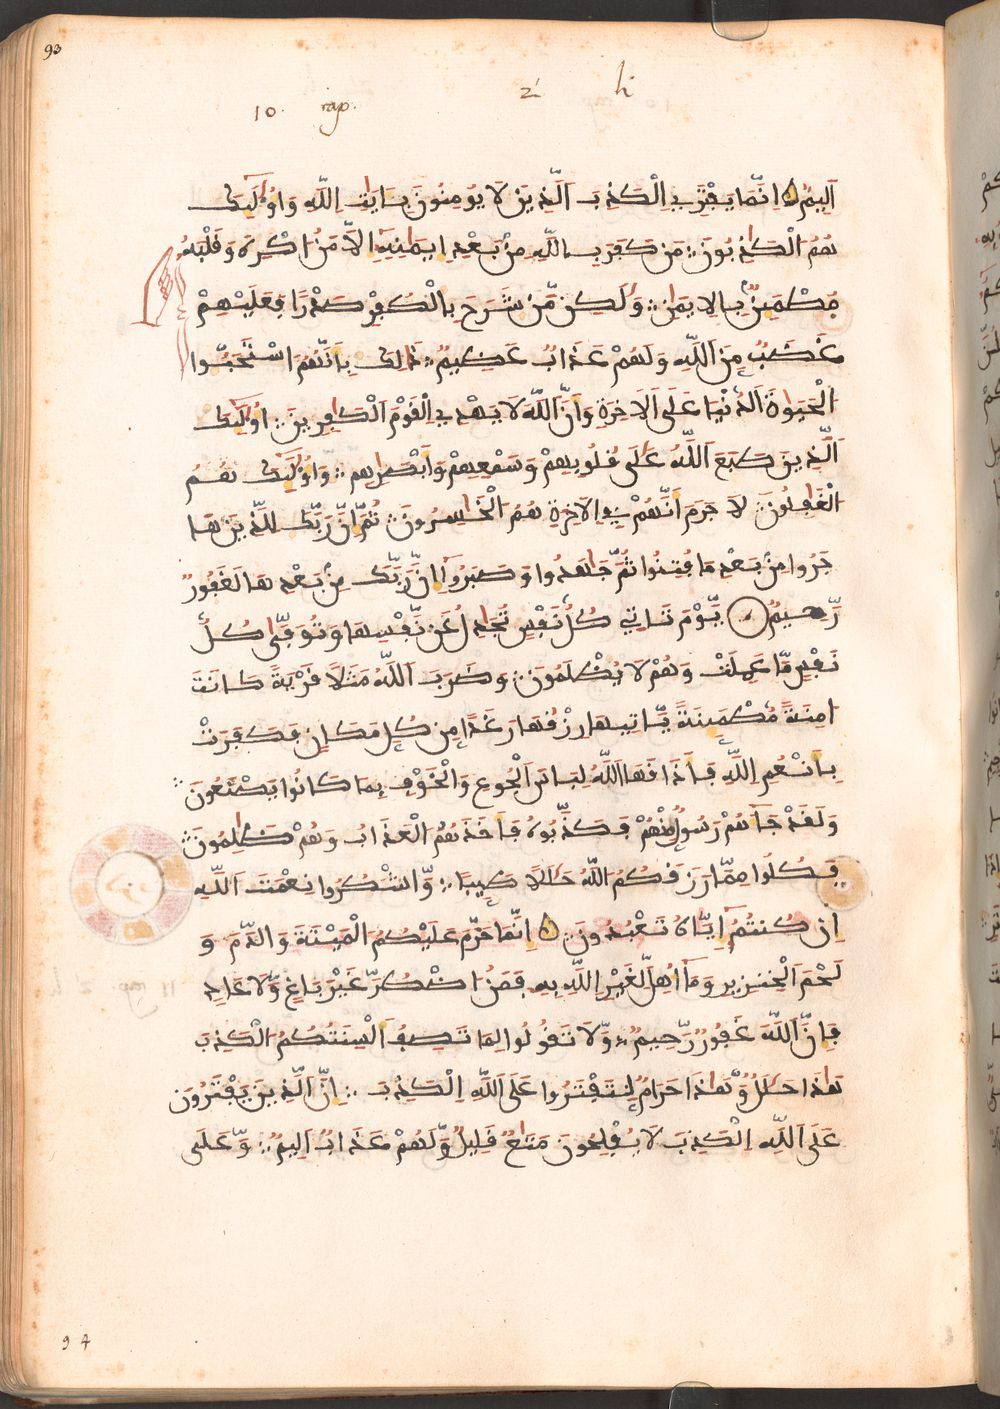 93
10. rap. 2 h
اَلِيمٌ اِنَّمَا يَفْتَرِے اِلْكَذِبَ اَلَّذِينَ لَا يُومِنُونَ بِـَٔايَٰتِ اِللَّهِ وَأُوْلَٰٓئِكَ
هُمُ الْكَٰذِبُونَ مَن كَفَرَ بِاللَّهِ مِنۢ بَعْدِ إِيمَٰنِهِۦٓ إِلَّا مَنُ اكْرِهَ وَقَلْبُهُۥ
مُطْمَئِنٌّۢ بِالِايمَٰنِ وَلَٰكِن مَّن شَرَحَ بِالْكُفْرِ صَدْرًا فَعَلَيْهِمْ
غَضَبٌ مِّنَ اَللَّهِ وَلَهُمْ عَذَابٌ عَظِيمٌ ذَٰلِكَ بِأَنَّهُمُ اسْتَحَبُّوا
الْحَيَوٰةَ اَلدُّنْيَا عَلَى اَلَاخِرَةِ وَأَنَّ اَللَّهَ لَا يَهْدِے اِلْقَوْمَ اَلْكَٰفِرِينَ أُوْلَٰٓئِكَ
اَلَّذِينَ طَبَعَ اَللَّهُ عَلَىٰ قُلُوبِهِمْ وَسَمْعِهِمْ وَأَبْصَٰرِهِمْ وَأُوْلَٰٓئِكَ هُمُ
الْغَٰفِلُونَ لَا جَرَمَ أَنَّهُمْ فِے اِلَاخِرَةِ هُمُ الْخَٰسِرُونَ ثُمَّ إِنَّ رَبَّكَ لِلَّذِينَ هَا
جَرُوا مِنۢ بَعْدِ مَا فُتِنُوا ثُمَّ جَٰهَدُوا وَصَبَرُوٓا إِنَّ رَبَّكَ مِنۢ بَعْدِهَا لَغَفُورٌ
رَّحِيمٌ يَوْمَ تَاتِے كُلُّ نَفْسٍ تُجَٰدِلُ عَن نَّفْسِهَا وَتُوَفَّىٰ كُلُّ
نَفْسٍ مَّا عَمِلَتْ وَهُمْ لَا يُظْلَمُونَ وَضَرَبَ اَللَّهُ مَثَلًا قَرْيَةً كَانَتْ
ءَامِنَةً مُّطْمَئِنَّةً يَّاتِيهَا رِزْقُهَا رَغَدًا مِّن كُلِّ مَكَانٍ فَكَفَرَتْ
بِأَنْعُمِ اِللَّهِ فَأَذَاقَهَا اَللَّهُ لِبَاسَ اَلْجُوعِ وَالْخَوْفِ بِمَا كَانُوا يَصْنَعُونَ
وَلَقَدْ جَآءَهُمْ رَسُولٌ مِّنْهُمْ فَكَذَّبُوهُ فَأَخَذَهُمُ الْعَذَابُ وَهُمْ ظَٰلِمُونَ
فَكُلُوا مِمَّا رَزَقَكُمُ اللَّهُ حَلَٰلًا طَيِّبًا وَّاشْكُرُوا نِعْمَتَ اَللَّهِ
إِن كُنتُمْ إِيَّاهُ تَعْبُدُونَ إِنَّمَا حَرَّمَ عَلَيْكُمُ الْمَيْتَةَ وَالدَّمَ وَ
لَحْمَ اَلْخِنزِيرِ وَمَآ أُهِلَّ لِغَيْرِ اِللَّهِ بِهِۦ فَمَنُ اضْطُرَّ غَيْرَ بَاغٍ وَّلَا عَادٍ
فَإِنَّ اَللَّهَ غَفُورٌ رَّحِيمٌ وَّلَا تَقُولُوا لِمَا تَصِفُ أَلْسِنَتُكُمُ الْكَذِبَ
هَٰذَا حَلَٰلٌ وَّهَٰذَا حَرَامٌ لِّتَفْتَرُوا عَلَى اَللَّهِ اِلْكَذِبَ إِنَّ اَلَّذِينَ يَفْتَرُونَ
عَلَى اَللَّهِ اِلْكَذِبَ لَا يُفْلِحُونَ مَتَٰعٌ قَلِيلٌ وَّلَهُمْ عَذَابٌ اَلِيمٌ وَّعَلَى
94